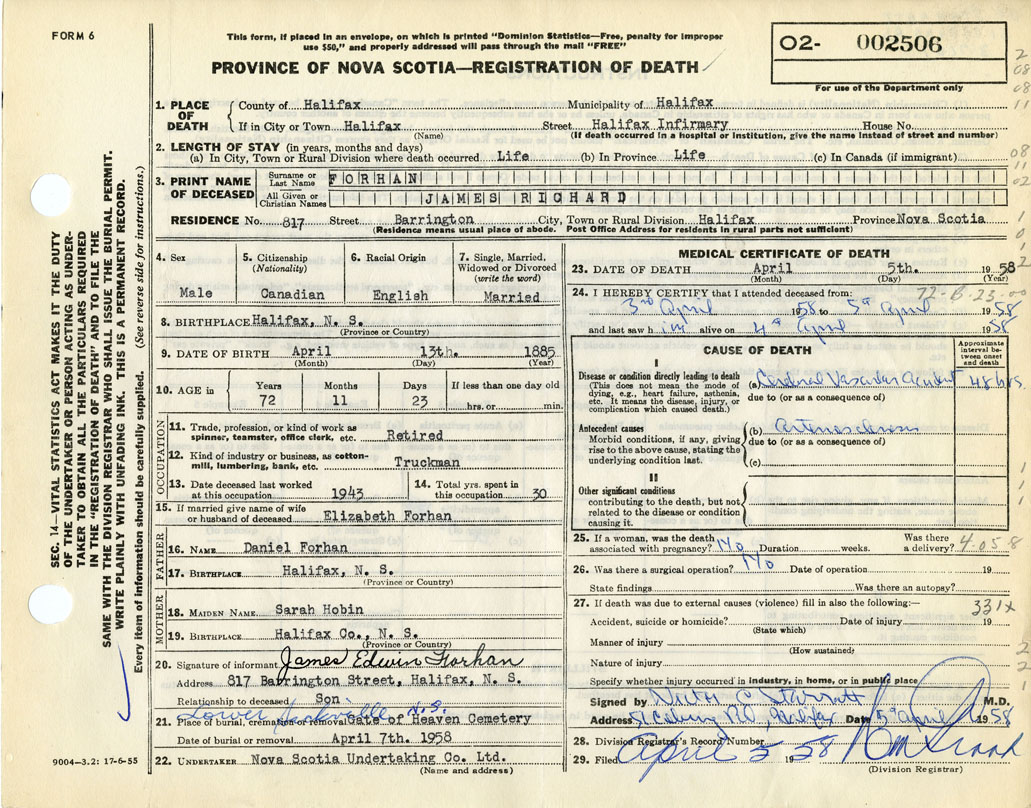 FORM 6
This form, if placed in an envelope, on which is printed "Dominion Statistics—Free, penalty for improper
use $50," and properly addressed will pass through the mail "FREE"
O2- 002506
For use of the Department only
PROVINCE OF NOVA SCOTIA—REGISTRATION OF DEATH
1. PLACE OF DEATH
County of Halifax Municipality of Halifax
If in City or Town Halifax Street Halifax Infirmary House No.
(Name) (If death occurred in a hospital or institution, give the name instead of street and number)
2. LENGTH OF STAY (in years, months and days)
(a) In City, Town or Rural Division where death occurred Life (b) In Province Life (c) In Canada (if immigrant)
3. PRINT NAME OF DECEASED
Surname or Last Name FORHAN
All Given or Christian Names JAMES RICHARD
RESIDENCE No. 817 Street Barrington City, Town or Rural Division Halifax Province Nova Scotia
(Residence means usual place of abode. Post Office Address for residents in rural parts not sufficient)
4. Sex
Male
5. Citizenship
(Nationality)
Canadian
6. Racial Origin
English
7. Single, Married,
Widowed or Divorced
(write the word)
Married
8. BIRTHPLACE Halifax, N. S.
(Province or Country)
9. DATE OF BIRTH April 13th. 1885
(Month) (Day) (Year)
10. AGE in
Years Months Days If less than one day old
72 11 23 hrs. or min.
OCCUPATION
11. Trade, profession, or kind of work as
spinner, teamster, office clerk, etc. Retired
12. Kind of industry or business, as cotton-
mill, lumbering, bank, etc. Truckman
13. Date deceased last worked
at this occupation 1943
14. Total yrs. spent in
this occupation 30
15. If married give name of wife
or husband of deceased Elizabeth Forhan
FATHER
16. NAME Daniel Forhan
17. BIRTHPLACE Halifax, N. S.
(Province or Country)
MOTHER
18. MAIDEN NAME Sarah Hobin
19. BIRTHPLACE Halifax Co., N. S.
(Province or Country)
20. Signature of informant James Edwin Forhan
Address 817 Barrington Street, Halifax, N. S.
Relationship to deceased Son
Lower Sackville N.S.
21. Place of burial, cremation or removal Gate of Heaven Cemetery
Date of burial or removal April 7th. 1958
22. UNDERTAKER Nova Scotia Undertaking Co. Ltd.
(Name and address)
MEDICAL CERTIFICATE OF DEATH
23. DATE OF DEATH April 5th. 1958
(Month) (Day) (Year)
24. I HEREBY CERTIFY that I attended deceased from: 72-B-23-00
3rd April 1958 to 5th April 1958
and last saw him alive on 4th April 1958
CAUSE OF DEATH
Approximate
interval be-
tween onset
and death
I
Disease or condition directly leading to death
(This does not mean the mode of
dying, e.g., heart failure, asthenia,
etc. It means the disease, injury, or
complication which caused death.)
(a) Cerebral Vascular accident 48 hrs.
due to (or as a consequence of)
Antecedent causes
Morbid conditions, if any, giving
rise to the above cause, stating the
underlying condition last.
(b) arteriosclerosis
due to (or as a consequence of)
(c)
II
Other significant conditions
contributing to the death, but not
related to the disease or condition
causing it.
25. If a woman, was the death
associated with pregnancy? No Duration weeks. Was there
a delivery? 4-058
26. Was there a surgical operation? No Date of operation 19
State findings Was there an autopsy?
27. If death was due to external causes (violence) fill in also the following:— 331X
Accident, suicide or homicide? Date of injury 19
(State which)
Manner of injury
(How sustained)
Nature of injury
Specify whether injury occurred in industry, in home, or in public place
Signed by M.D.
Address Halifax Date 5th April 1958
28. Division Registrar's Record Number
29. Filed April 5 1958
(Division Registrar)
SEC. 14—VITAL STATISTICS ACT MAKES IT THE DUTY
OF THE UNDERTAKER OR PERSON ACTING AS UNDER-
TAKER TO OBTAIN ALL THE PARTICULARS REQUIRED
IN THE "REGISTRATION OF DEATH" AND TO FILE THE
SAME WITH THE DIVISION REGISTRAR WHO SHALL ISSUE THE BURIAL PERMIT.
WRITE PLAINLY WITH UNFADING INK. THIS IS A PERMANENT RECORD.
Every item of information should be carefully supplied. (See reverse side for instructions.)
9004-3.2: 17-6-55